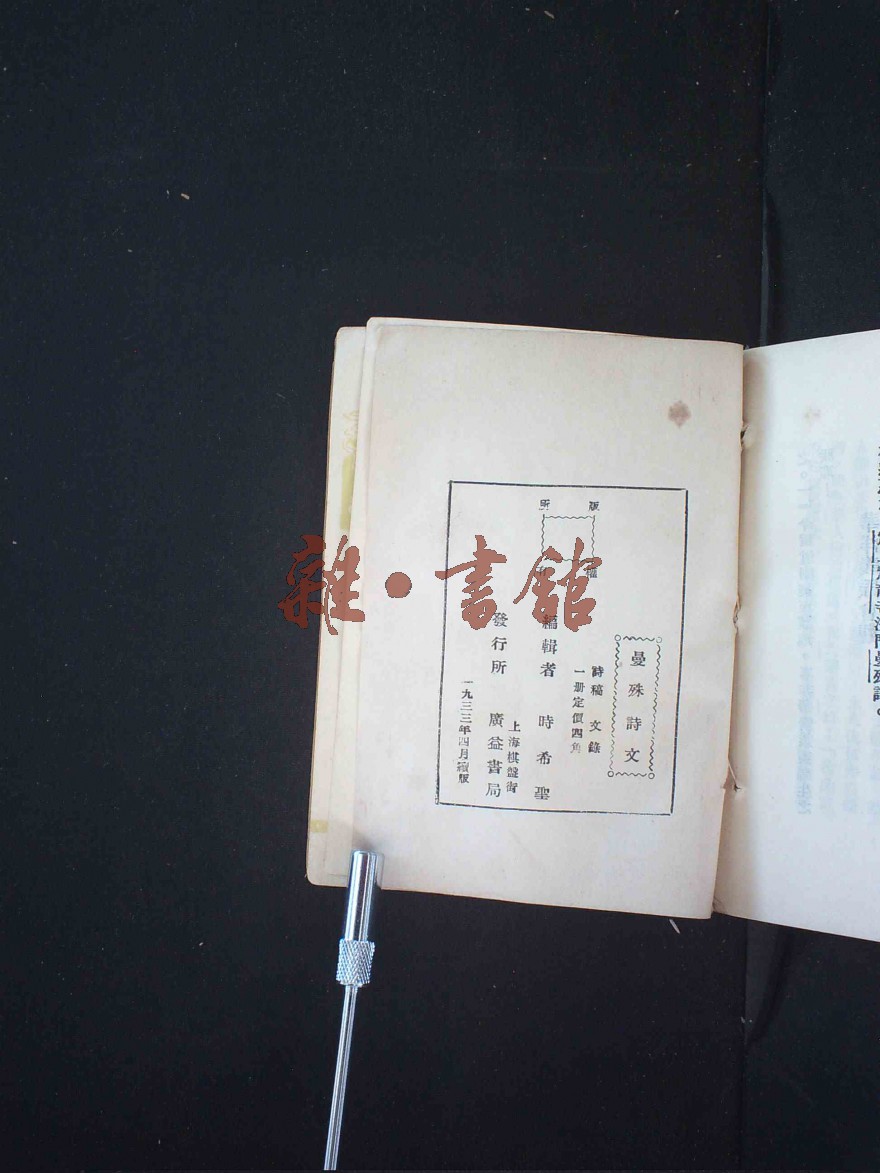 版
所
曼殊詩文
詩稿 文錄
一册定價四角
編輯者 時希聖
上海棋盤街
發行所 廣益書局
一九三三年四月續版
雜·書館